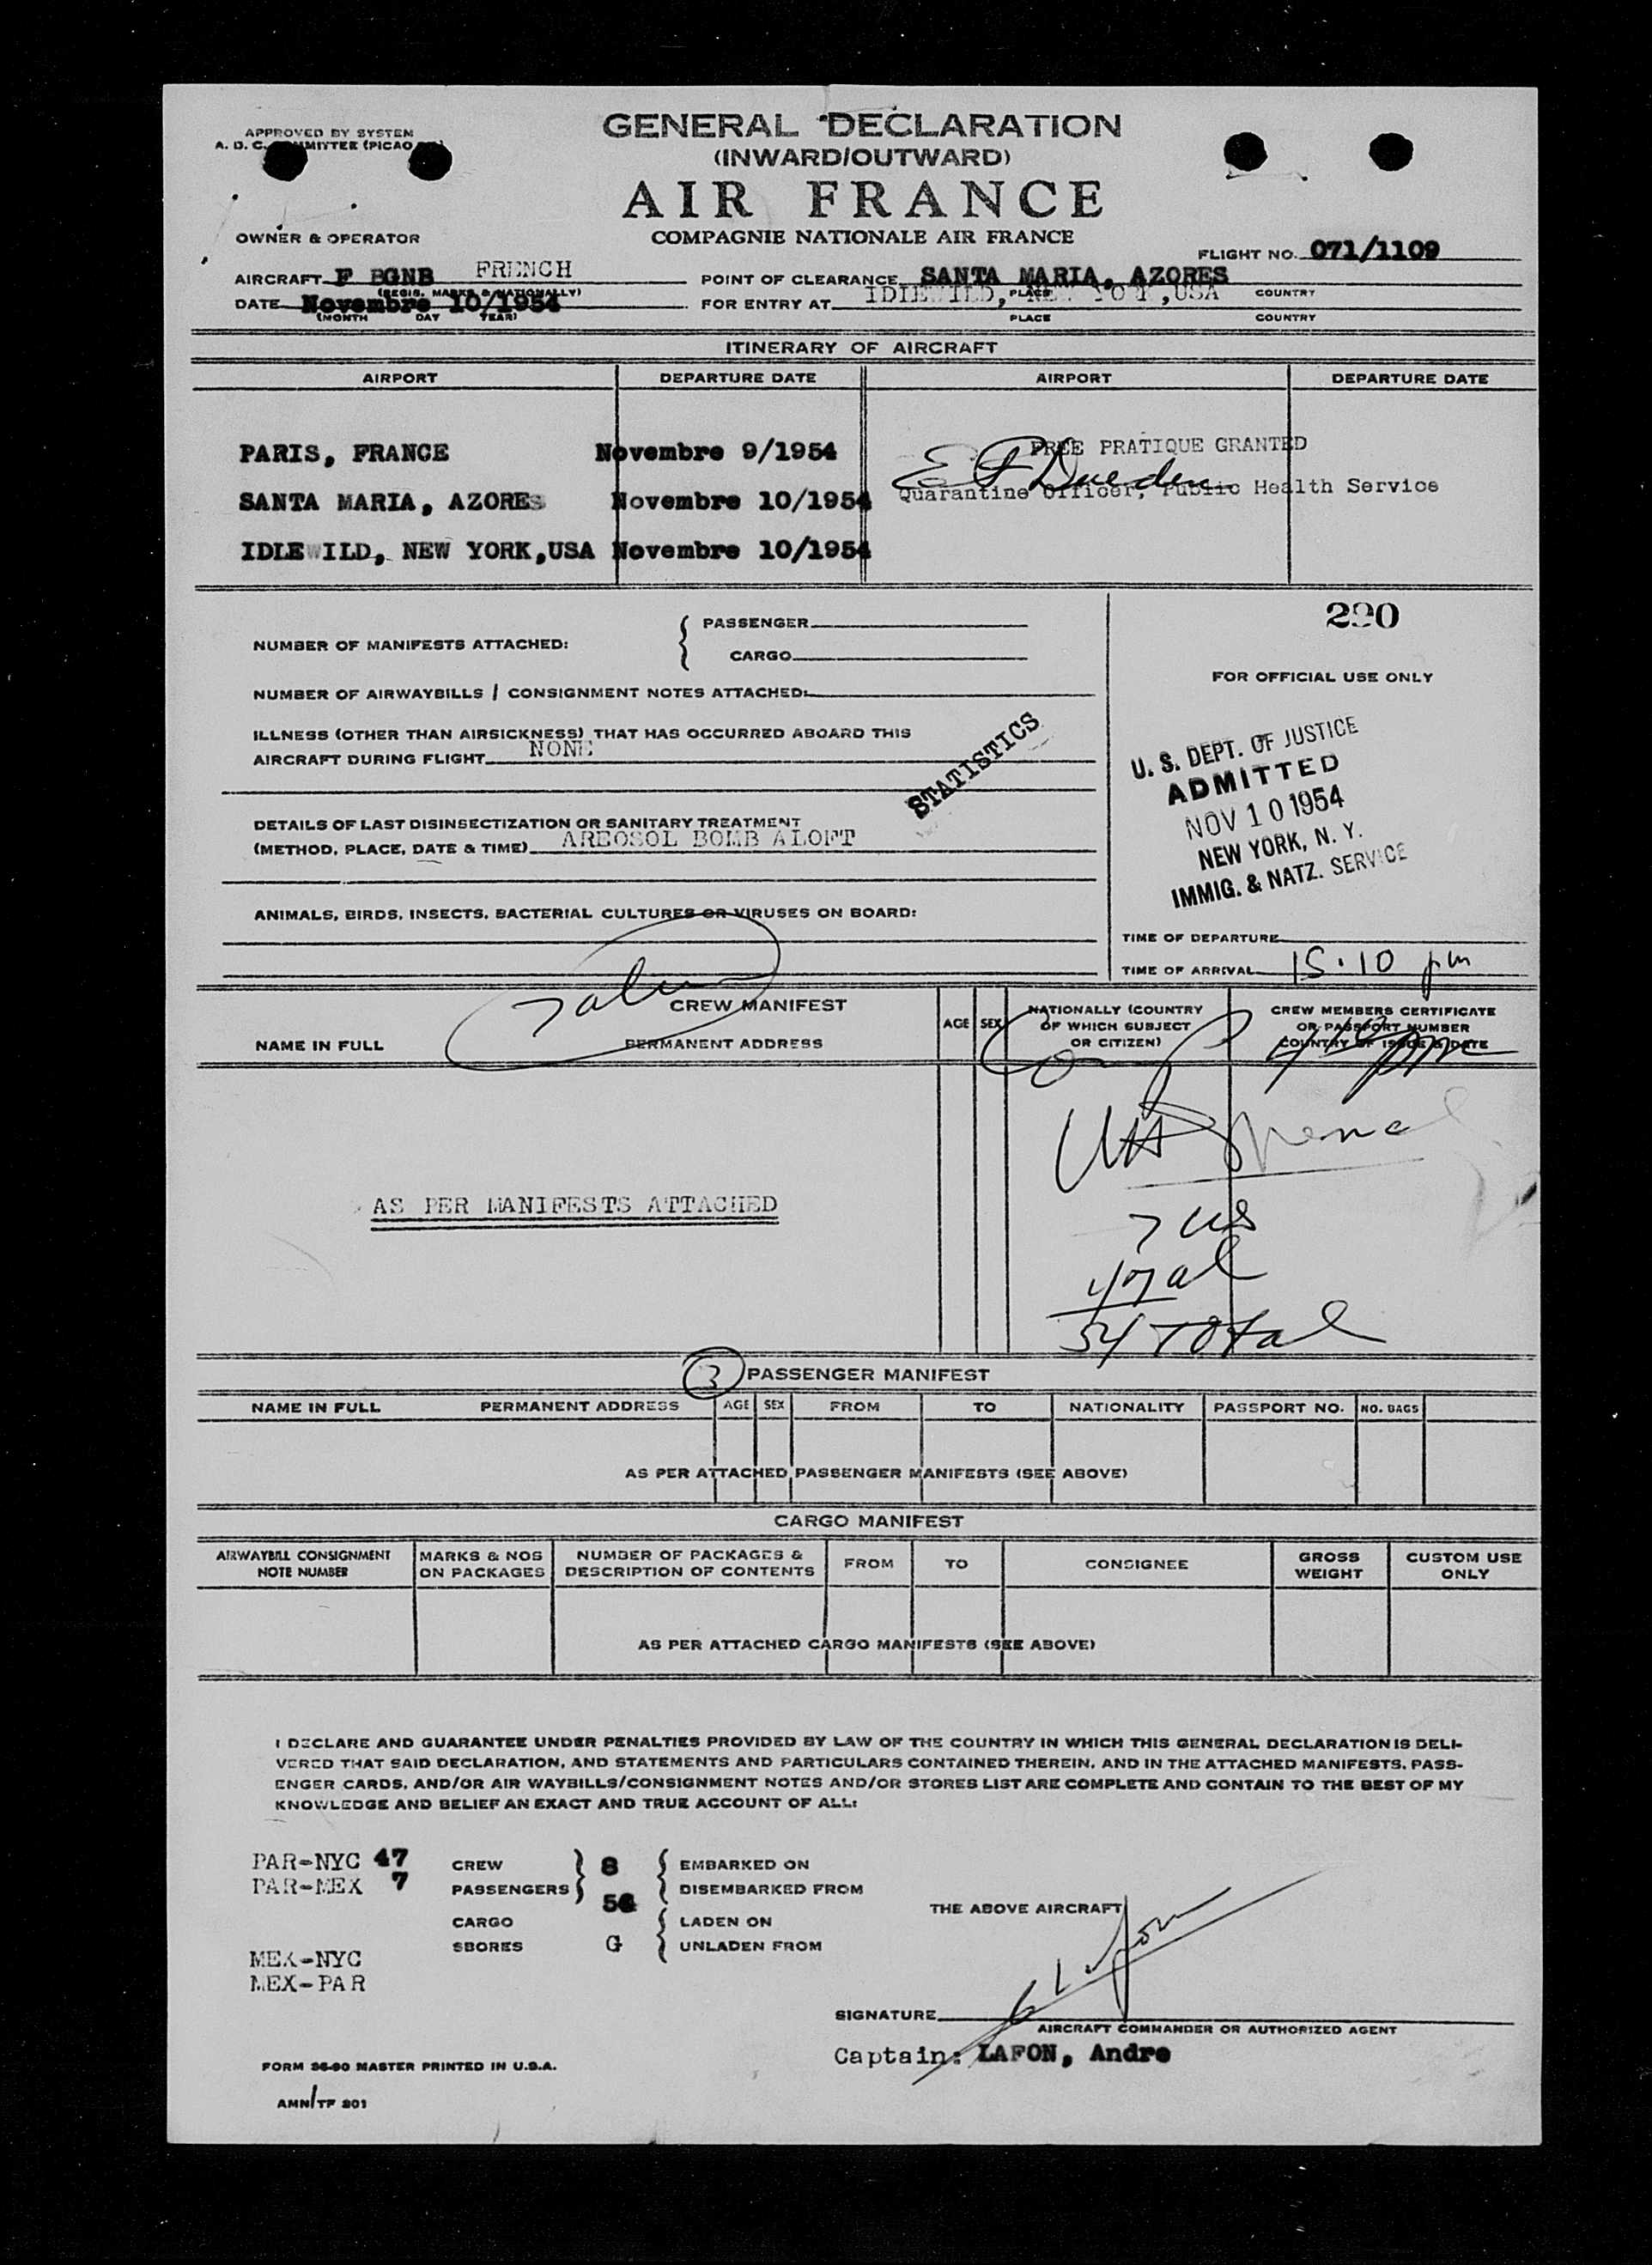 APPROVED BY SYSTEM
A. D. C. COMMITTEE (PICAO
GENERAL DECLARATION
(INWARD/OUTWARD)
AIR FRANCE
COMPAGNIE NATIONALE AIR FRANCE
OWNER & OPERATOR
FLIGHT NO. 071/1109
AIRCRAFT F BGNB FRENCH
POINT OF CLEARANCE SANTA MARIA, AZORES
(REGIS. MARKS & NATIONALLY)
PLACE COUNTRY
DATE Novembre 10/1954
FOR ENTRY AT IDLEWILD, NEW YORK, USA
(MONTH DAY YEAR)
PLACE COUNTRY
ITINERARY OF AIRCRAFT
AIRPORT DEPARTURE DATE AIRPORT DEPARTURE DATE
PARIS, FRANCE Novembre 9/1954
FREE PRATIQUE GRANTED
SANTA MARIA, AZORES Novembre 10/1954
Quarantine Officer, Public Health Service
IDLEWILD, NEW YORK,USA Novembre 10/1954
290
NUMBER OF MANIFESTS ATTACHED:
PASSENGER
CARGO
FOR OFFICIAL USE ONLY
NUMBER OF AIRWAYBILLS / CONSIGNMENT NOTES ATTACHED:
ILLNESS (OTHER THAN AIRSICKNESS) THAT HAS OCCURRED ABOARD THIS
AIRCRAFT DURING FLIGHT NONE
STATISTICS
U. S. DEPT. OF JUSTICE
ADMITTED
NOV 10 1954
NEW YORK, N. Y.
IMMIG. & NATZ. SERVICE
DETAILS OF LAST DISINSECTIZATION OR SANITARY TREATMENT
(METHOD, PLACE, DATE & TIME) AREOSOL BOMB ALOFT
ANIMALS, BIRDS, INSECTS, BACTERIAL CULTURES OR VIRUSES ON BOARD:
TIME OF DEPARTURE
TIME OF ARRIVAL 15.10 pm
CREW MANIFEST
NAME IN FULL
PERMANENT ADDRESS
AGE SEX
NATIONALLY (COUNTRY
OF WHICH SUBJECT
OR CITIZEN)
CREW MEMBERS CERTIFICATE
OR PASSPORT NUMBER
COUNTRY OF ISSUE & DATE
AS PER MANIFESTS ATTACHED
7 us
47 al
54 Total
3 PASSENGER MANIFEST
NAME IN FULL PERMANENT ADDRESS AGE SEX FROM TO NATIONALITY PASSPORT NO. NO. BAGS
AS PER ATTACHED PASSENGER MANIFESTS (SEE ABOVE)
CARGO MANIFEST
AIRWAYBILL CONSIGNMENT
NOTE NUMBER
MARKS & NOS
ON PACKAGES
NUMBER OF PACKAGES &
DESCRIPTION OF CONTENTS
FROM
TO
CONSIGNEE
GROSS
WEIGHT
CUSTOM USE
ONLY
AS PER ATTACHED CARGO MANIFESTS (SEE ABOVE)
I DECLARE AND GUARANTEE UNDER PENALTIES PROVIDED BY LAW OF THE COUNTRY IN WHICH THIS GENERAL DECLARATION IS DELI-
VERED THAT SAID DECLARATION, AND STATEMENTS AND PARTICULARS CONTAINED THEREIN, AND IN THE ATTACHED MANIFESTS, PASS-
ENGER CARDS, AND/OR AIR WAYBILLS/CONSIGNMENT NOTES AND/OR STORES LIST ARE COMPLETE AND CONTAIN TO THE BEST OF MY
KNOWLEDGE AND BELIEF AN EXACT AND TRUE ACCOUNT OF ALL:
PAR-NYC 47
PAR-MEX 7
MEX-NYC
MEX-PAR
CREW 8 EMBARKED ON
PASSENGERS 54 DISEMBARKED FROM
CARGO LADEN ON
SBORES G UNLADEN FROM
THE ABOVE AIRCRAFT
SIGNATURE
AIRCRAFT COMMANDER OR AUTHORIZED AGENT
Captain: LAFON, Andre
FORM 36-90 MASTER PRINTED IN U.S.A.
AMN/TF 201